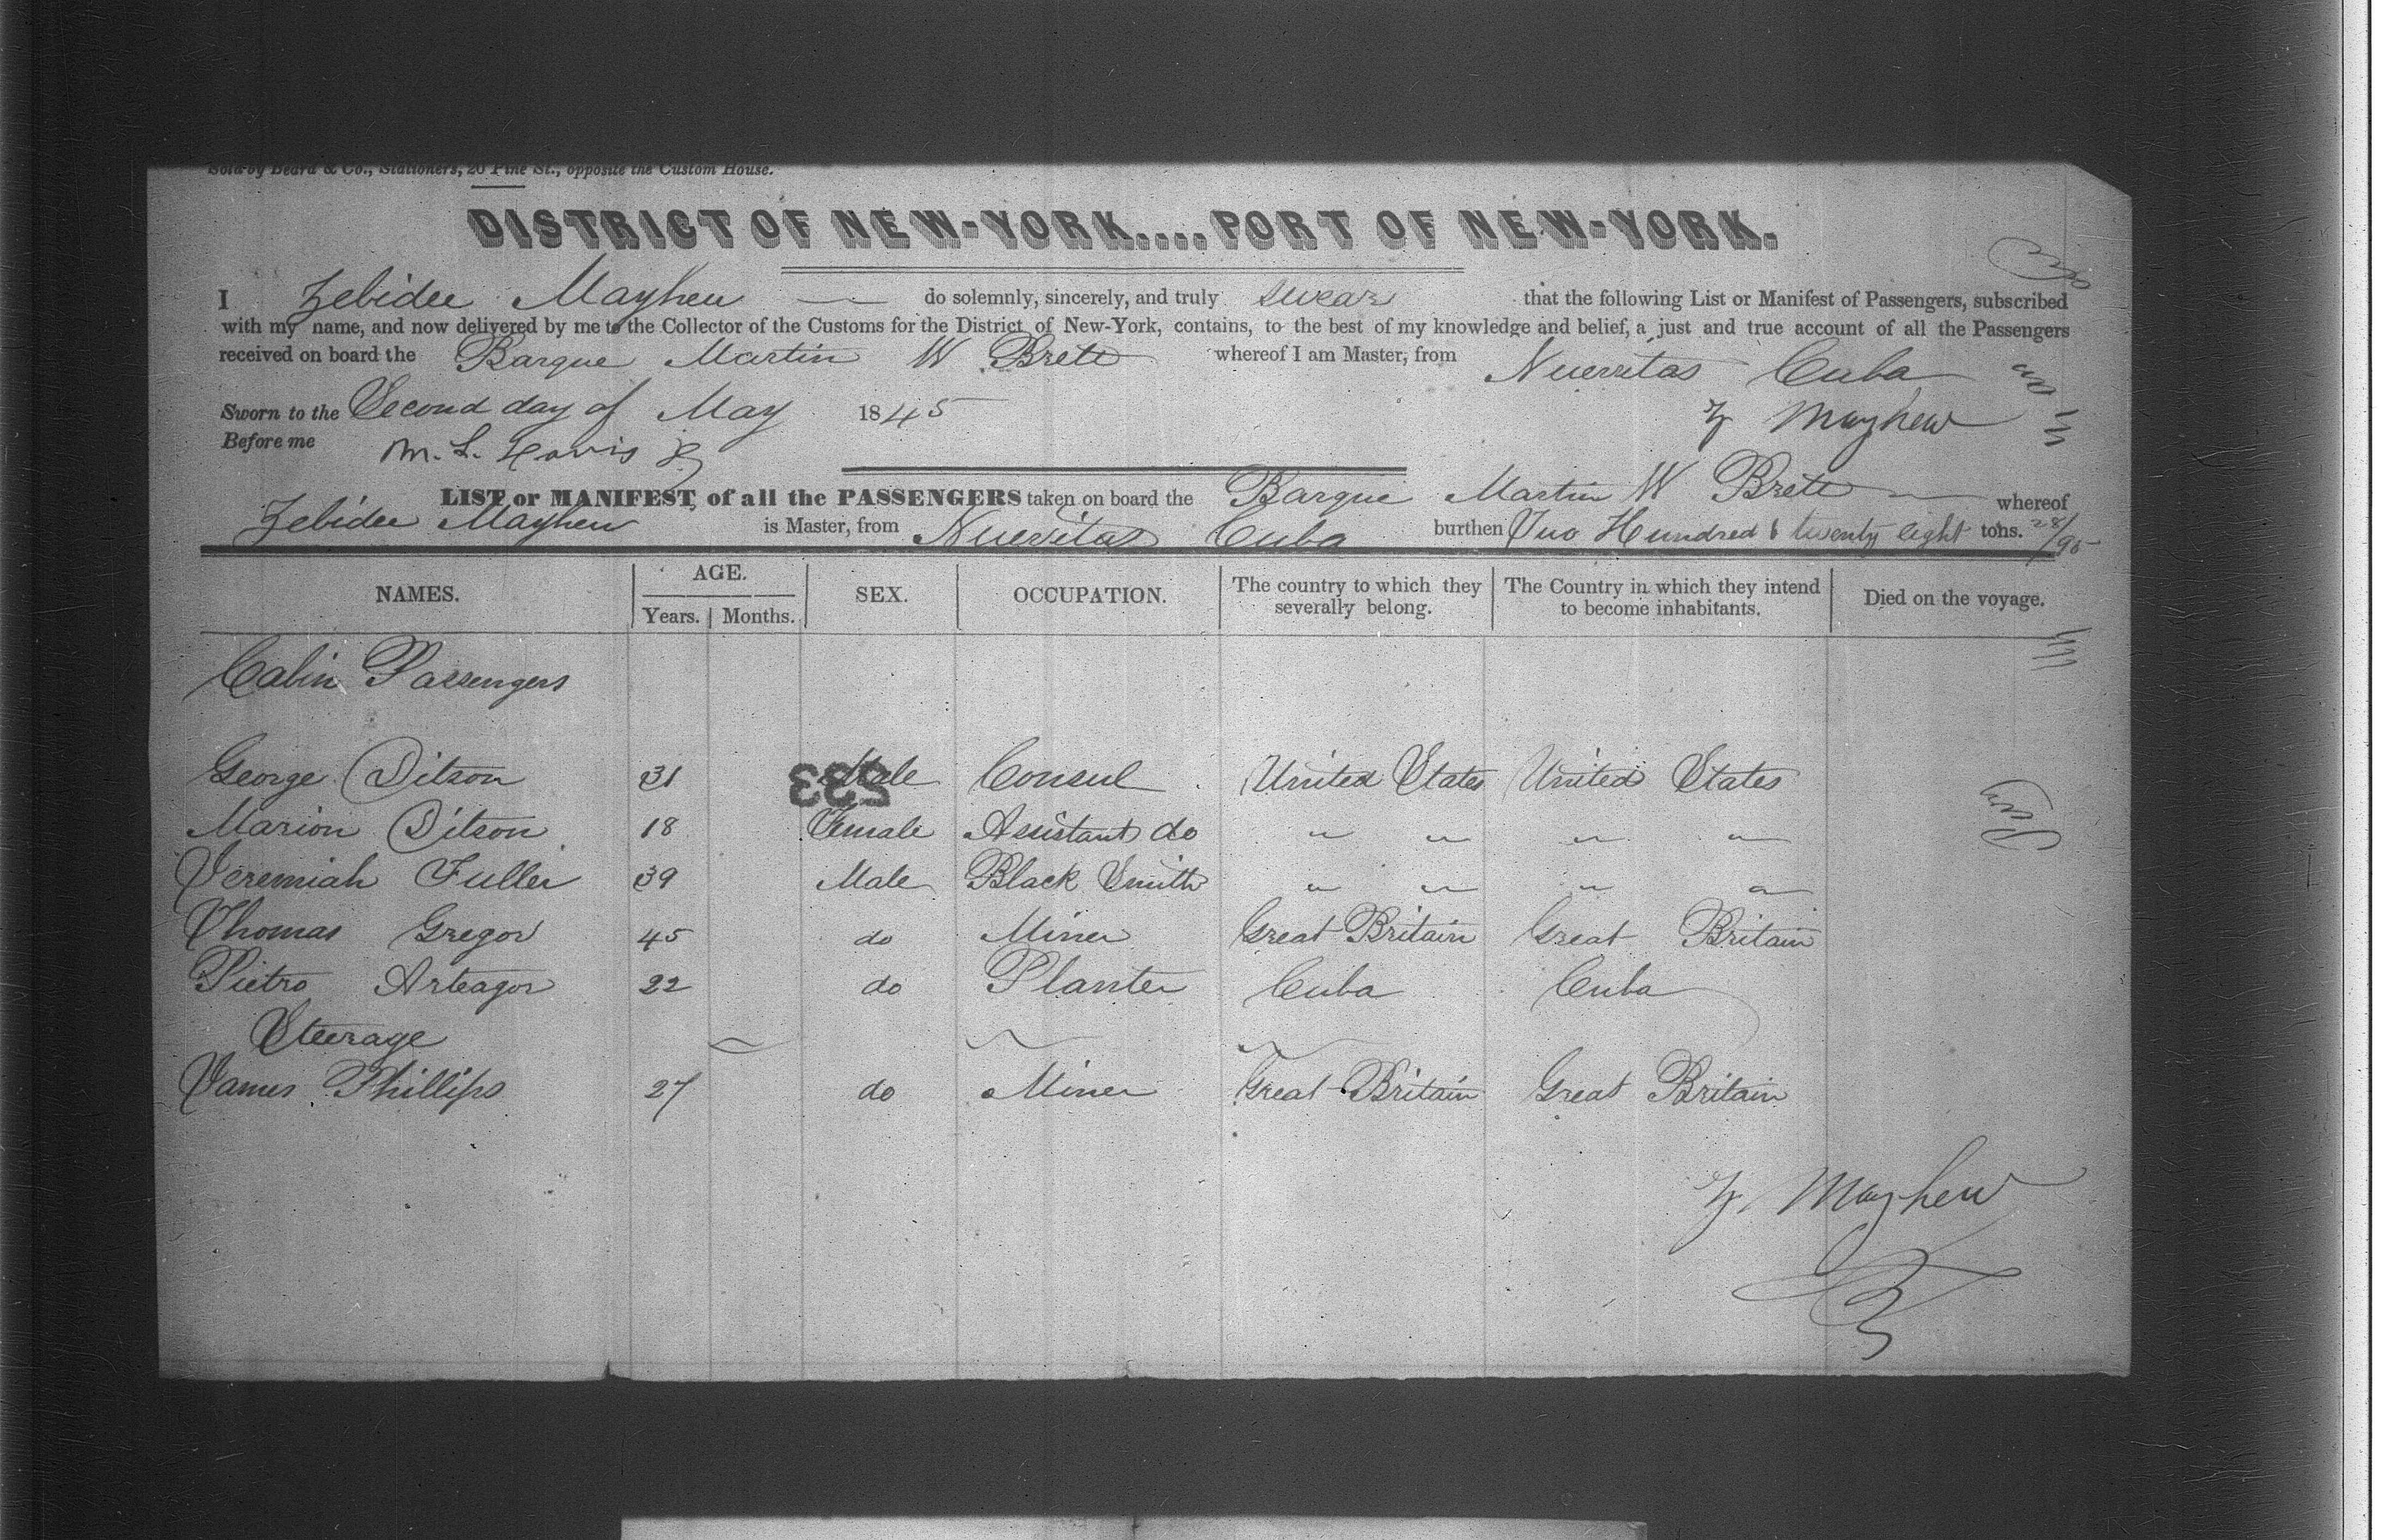 Sold by Beard & Co., Stationers, 20 Pine St., opposite the Custom House.
DISTRICT OF NEW-YORK....PORT OF NEW-YORK.
I Zebidee Mayhew do solemnly, sincerely, and truly swear that the following List or Manifest of Passengers, subscribed
with my name, and now delivered by me to the Collector of the Customs for the District of New-York, contains, to the best of my knowledge and belief, a just and true account of all the Passengers
received on board the Barque Martin W Brett whereof I am Master, from Nuevitas Cuba
Sworn to the Second day of May 1845 Z Mayhew
Before me M. L.
LIST or MANIFEST, of all the PASSENGERS taken on board the Barque Martin W Brett whereof
Zebidee Mayhew is Master, from Nuevitas Cuba burthen Two Hundred & twenty eight tons. 28/95
NAMES. AGE. SEX. OCCUPATION. The country to which they severally belong. The Country in which they intend to become inhabitants. Died on the voyage.
Years. Months.
Cabin Passengers
233
George Ditson 31 Male Consul United States United States
Marion Ditson 18 Female Assistant do " " " "
Jeremiah Fuller 39 Male Black Smith " " " "
Thomas Gregor 45 do Miner Great Britain Great Britain
Pietro Arteagor 22 do Planter Cuba Cuba
Steerage
James Phillips 27 do Miner Great Britain Great Britain
Z. Mayhew